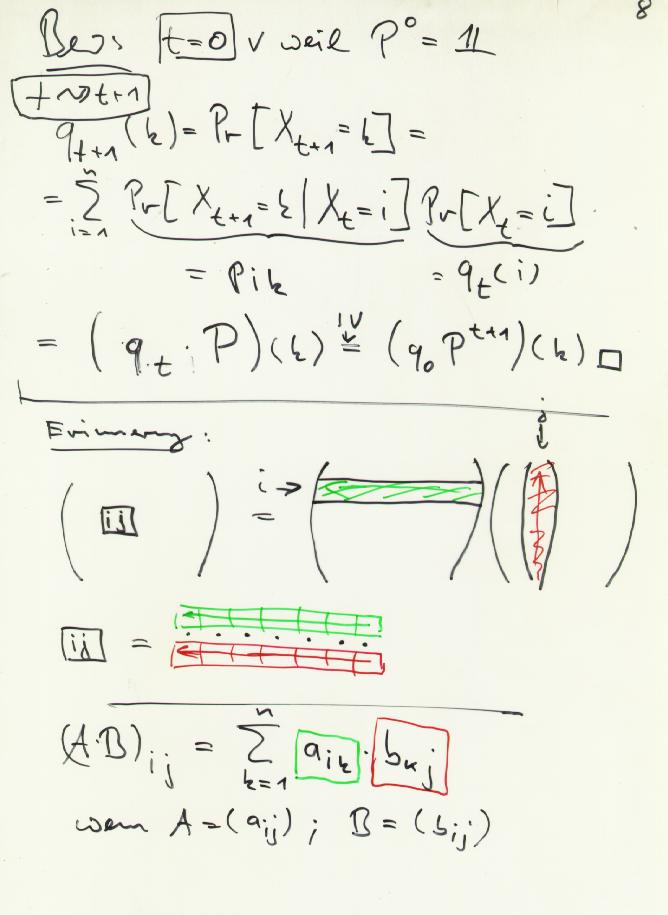 8
Bew: t=0 ✓ weil P⁰ = 𝟙
t ⇝ t+1
q_{t+1}(k) = Pr[X_{t+1} = k] =
= ∑_{i=1}^{n} Pr[X_{t+1} = k | X_t = i] Pr[X_t = i]
= p_{ik} = q_t(i)
= (q_t · P)(k) =^{IV↓} (q_0 P^{t+1})(k) □
Erinnerung: j ↓
( ij ) = i → ( ) ( )
ij =
(A·B)_{ij} = ∑_{k=1}^{n} a_{ik} · b_{kj}
wenn A = (a_{ij}) ; B = (b_{ij})